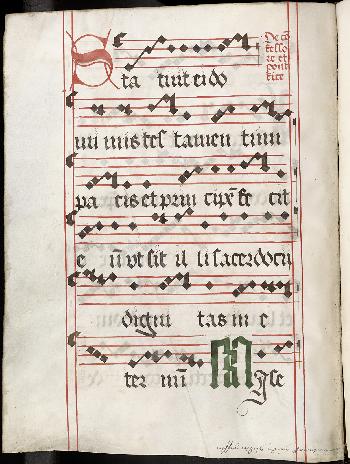 De cō
fesso
re et
ponti
fice
Sta tuit ei do
mi nus tes tamen tum
pa cis et prin cipē fe cit
e ū vt sit il li sacerdocii
digni tas in e
ter nū Mise